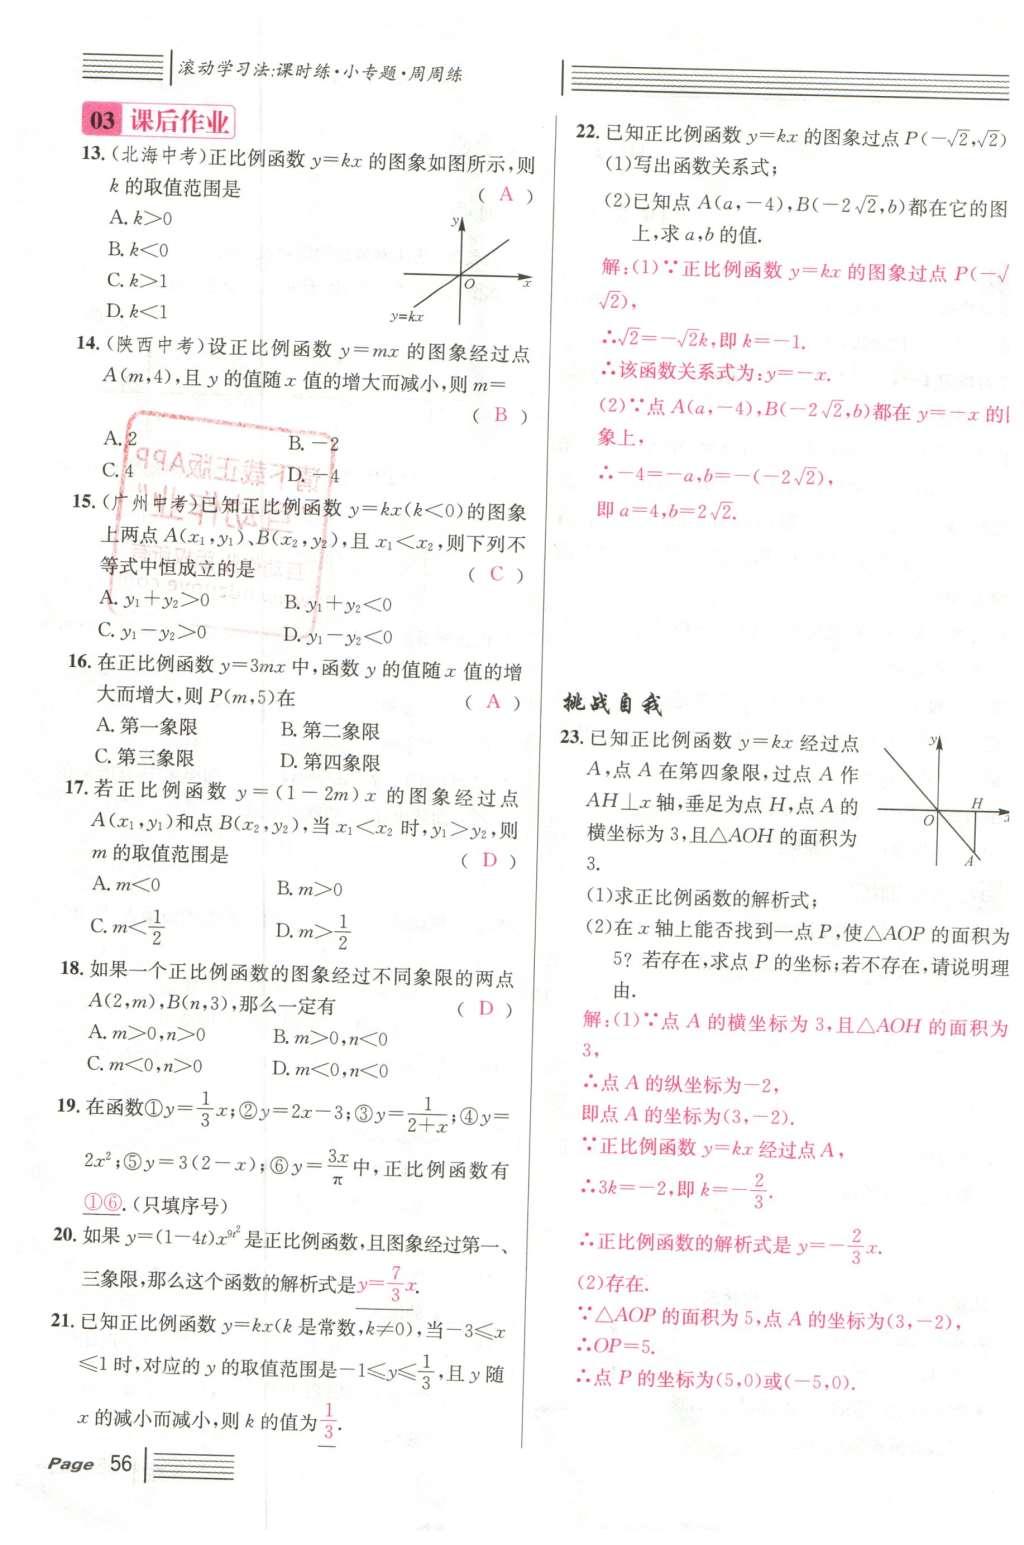 滚动学习法:课时练·小专题·周周练
03 课后作业
13.(北海中考)正比例函数 y=kx 的图象如图所示,则
k 的取值范围是 ( A )
A. k>0
B. k<0
C. k>1
D. k<1
y
O
x
y=kx
14.(陕西中考)设正比例函数 y=mx 的图象经过点
A(m,4),且 y 的值随 x 值的增大而减小,则 m=
( B )
A. 2 B. -2
C. 4 D. -4
15.(广州中考)已知正比例函数 y=kx(k<0)的图象
上两点 A(x₁,y₁)、B(x₂,y₂),且 x₁<x₂,则下列不
等式中恒成立的是 ( C )
A. y₁+y₂>0 B. y₁+y₂<0
C. y₁-y₂>0 D. y₁-y₂<0
16. 在正比例函数 y=3mx 中,函数 y 的值随 x 值的增
大而增大,则 P(m,5)在 ( A )
A. 第一象限 B. 第二象限
C. 第三象限 D. 第四象限
17. 若正比例函数 y=(1-2m)x 的图象经过点
A(x₁,y₁)和点 B(x₂,y₂),当 x₁<x₂ 时,y₁>y₂,则
m 的取值范围是 ( D )
A. m<0 B. m>0
C. m<1/2 D. m>1/2
18. 如果一个正比例函数的图象经过不同象限的两点
A(2,m),B(n,3),那么一定有 ( D )
A. m>0,n>0 B. m>0,n<0
C. m<0,n>0 D. m<0,n<0
19. 在函数①y=1/3x;②y=2x-3;③y=1/(2+x);④y=
2x²;⑤y=3(2-x);⑥y=3x/π中,正比例函数有
①⑥.(只填序号)
20. 如果 y=(1-4t)x^(9t²)是正比例函数,且图象经过第一、
三象限,那么这个函数的解析式是y=7/3x.
21. 已知正比例函数 y=kx(k 是常数,k≠0),当-3≤x
≤1 时,对应的 y 的取值范围是-1≤y≤1/3,且 y 随
x 的减小而减小,则 k 的值为1/3.
Page 56
22. 已知正比例函数 y=kx 的图象过点 P(-√2,√2)
(1)写出函数关系式;
(2)已知点 A(a,-4),B(-2√2,b)都在它的图
上,求 a,b 的值.
解:(1)∵正比例函数 y=kx 的图象过点 P(-√
√2),
∴√2=-√2k,即 k=-1.
∴该函数关系式为:y=-x.
(2)∵点 A(a,-4),B(-2√2,b)都在 y=-x 的
象上,
∴-4=-a,b=-(-2√2),
即 a=4,b=2√2.
挑战自我
23. 已知正比例函数 y=kx 经过点
A,点 A 在第四象限,过点 A 作
AH⊥x 轴,垂足为点 H,点 A 的
横坐标为 3,且△AOH 的面积为
3.
y
H
O
A
(1)求正比例函数的解析式;
(2)在 x 轴上能否找到一点 P,使△AOP 的面积为
5? 若存在,求点 P 的坐标;若不存在,请说明理
由.
解:(1)∵点 A 的横坐标为 3,且△AOH 的面积为
3,
∴点 A 的纵坐标为-2,
即点 A 的坐标为(3,-2).
∵正比例函数 y=kx 经过点 A,
∴3k=-2,即 k=-2/3.
∴正比例函数的解析式是 y=-2/3x.
(2)存在.
∵△AOP 的面积为 5,点 A 的坐标为(3,-2),
∴OP=5.
∴点 P 的坐标为(5,0)或(-5,0).